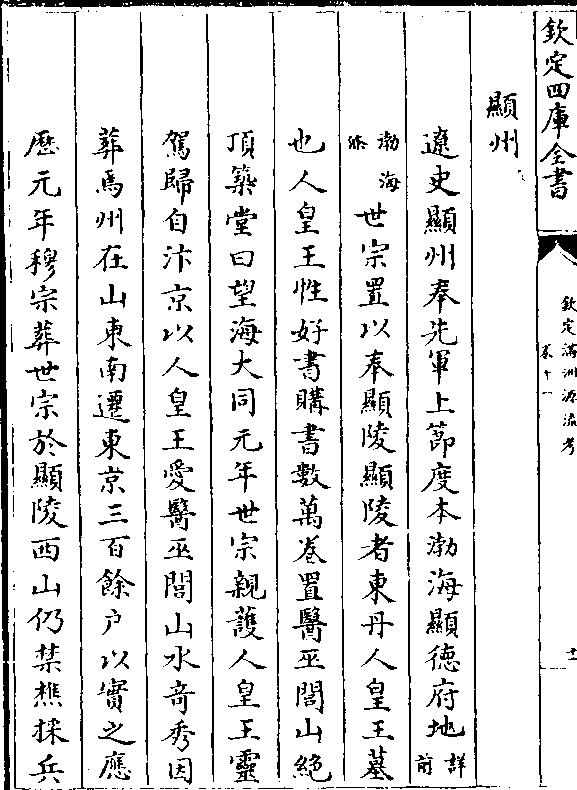 欽定四庫全書
欽定滿洲源流考
卷十一
十一
顯州
遼史顯州奉先軍上節度本渤海顯德府地詳前
渤海條世宗置以奉顯陵顯陵者東丹人皇王墓
也人皇王性好書購書數萬卷置醫巫閭山絶
頂築堂曰望海大同元年世宗親護人皇王靈
駕歸自汴京以人皇王愛醫巫閭山水竒秀因
葬焉州在山東南遷東京三百餘户以實之應
厯元年穆宗葬世宗於顯陵西山仍禁樵採兵